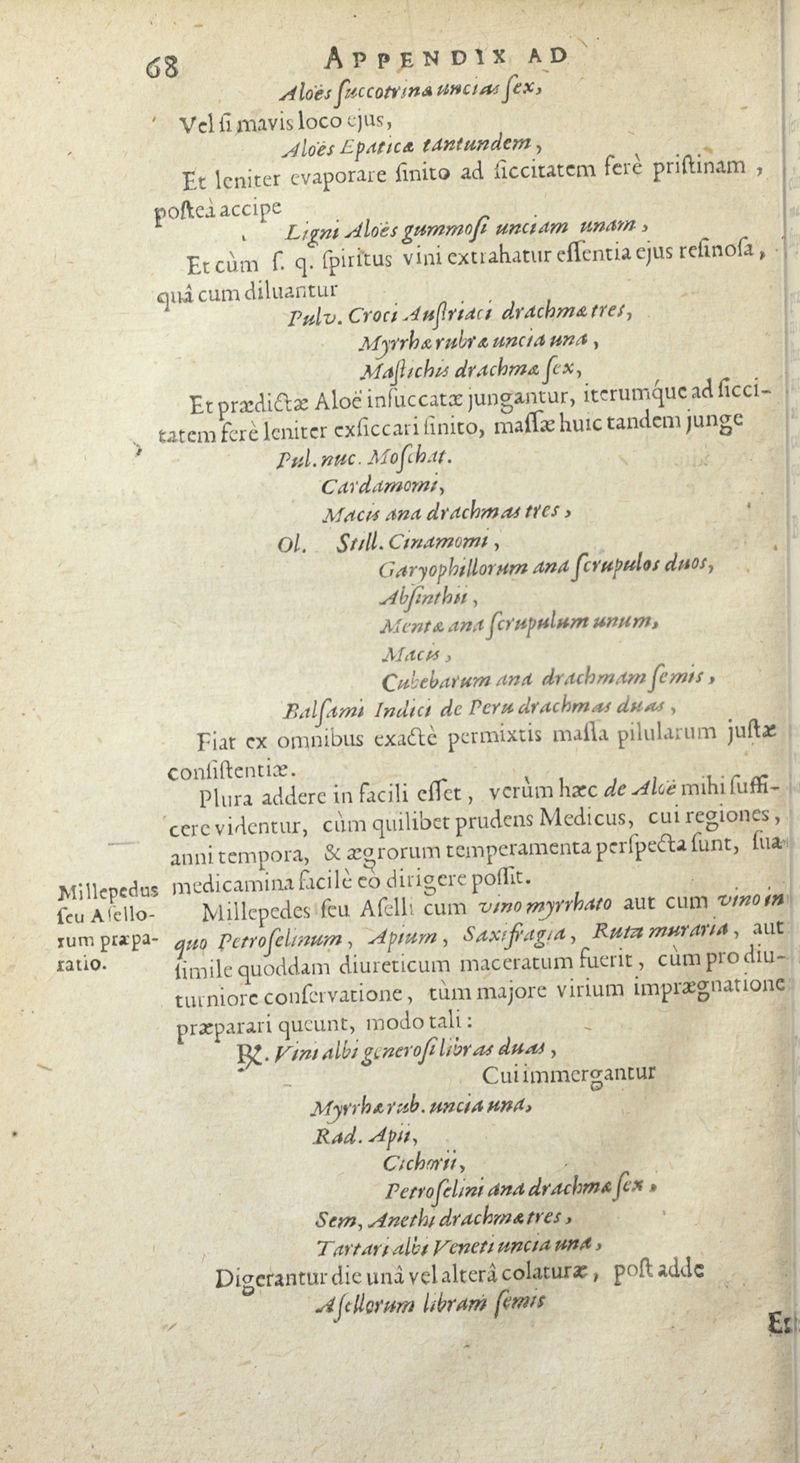 68 APPENDIX AD
Aloës ſuccotrinæ uncias ſex,
Vel ſi mavis loco ejus,
Aloës Epaticæ tantundem,
Et leniter evaporare ſinito ad ſiccitatem ferè priſtinam,
poſteà accipe
Ligni Aloës gummoſi unciam unam,
Et cùm ſ. q. ſpiritus vini extrahatur eſſentia ejus reſinoſa,
quâ cum diluantur
Pulv. Croci Auſtriaci drachmæ tres,
Myrrhæ rubræ uncia una,
Maſtichis drachmæ ſex,
Et prædictæ Aloë inſuccatæ jungantur, iterumque ad ſicci-
tatem ferè leniter exſiccari ſinito, maſſæ huic tandem junge
Pul. nuc. Moſchat.
Cardamomi,
Macis ana drachmas tres,
Ol. Still. Cinamomi,
Garyophillorum ana ſcrupulos duos,
Abſinthii,
Mentæ ana ſcrupulum unum,
Macis,
Cubebarum ana drachmam ſemis,
Balſami Indici de Peru drachmas duas,
Fiat ex omnibus exactè permixtis maſſa pilularum juſtæ
conſiſtentiæ.
Plura addere in facili eſſet, verùm hæc de Aloë mihi ſuffi-
cere videntur, cùm quilibet prudens Medicus, cui regiones,
anni tempora, & ægrorum temperamenta perſpecta ſunt, ſua
medicamina facilè eò dirigere poſſit.
Millepedus
ſeu Aſello-
rum præpa-
ratio.
Millepedes ſeu Aſelli cum vino myrrhato aut cum vino in
quo Petroſelinum, Apium, Saxifragia, Ruta muraria, aut
ſimile quoddam diureticum maceratum fuerit, cùm pro diu-
turniore conſervatione, tùm majore virium imprægnatione
præparari queunt, modo tali:
℞. Vini albi generoſi libras duas,
Cui immergantur
Myrrhæ rub. uncia una,
Rad. Apii,
Cichorii,
Petroſelini ana drachmæ ſex,
Sem, Anethi drachmæ tres,
Tartari albi Veneti uncia una,
Digerantur die unâ vel alterâ colaturæ, poſt adde
Aſellorum libram ſemis
Et